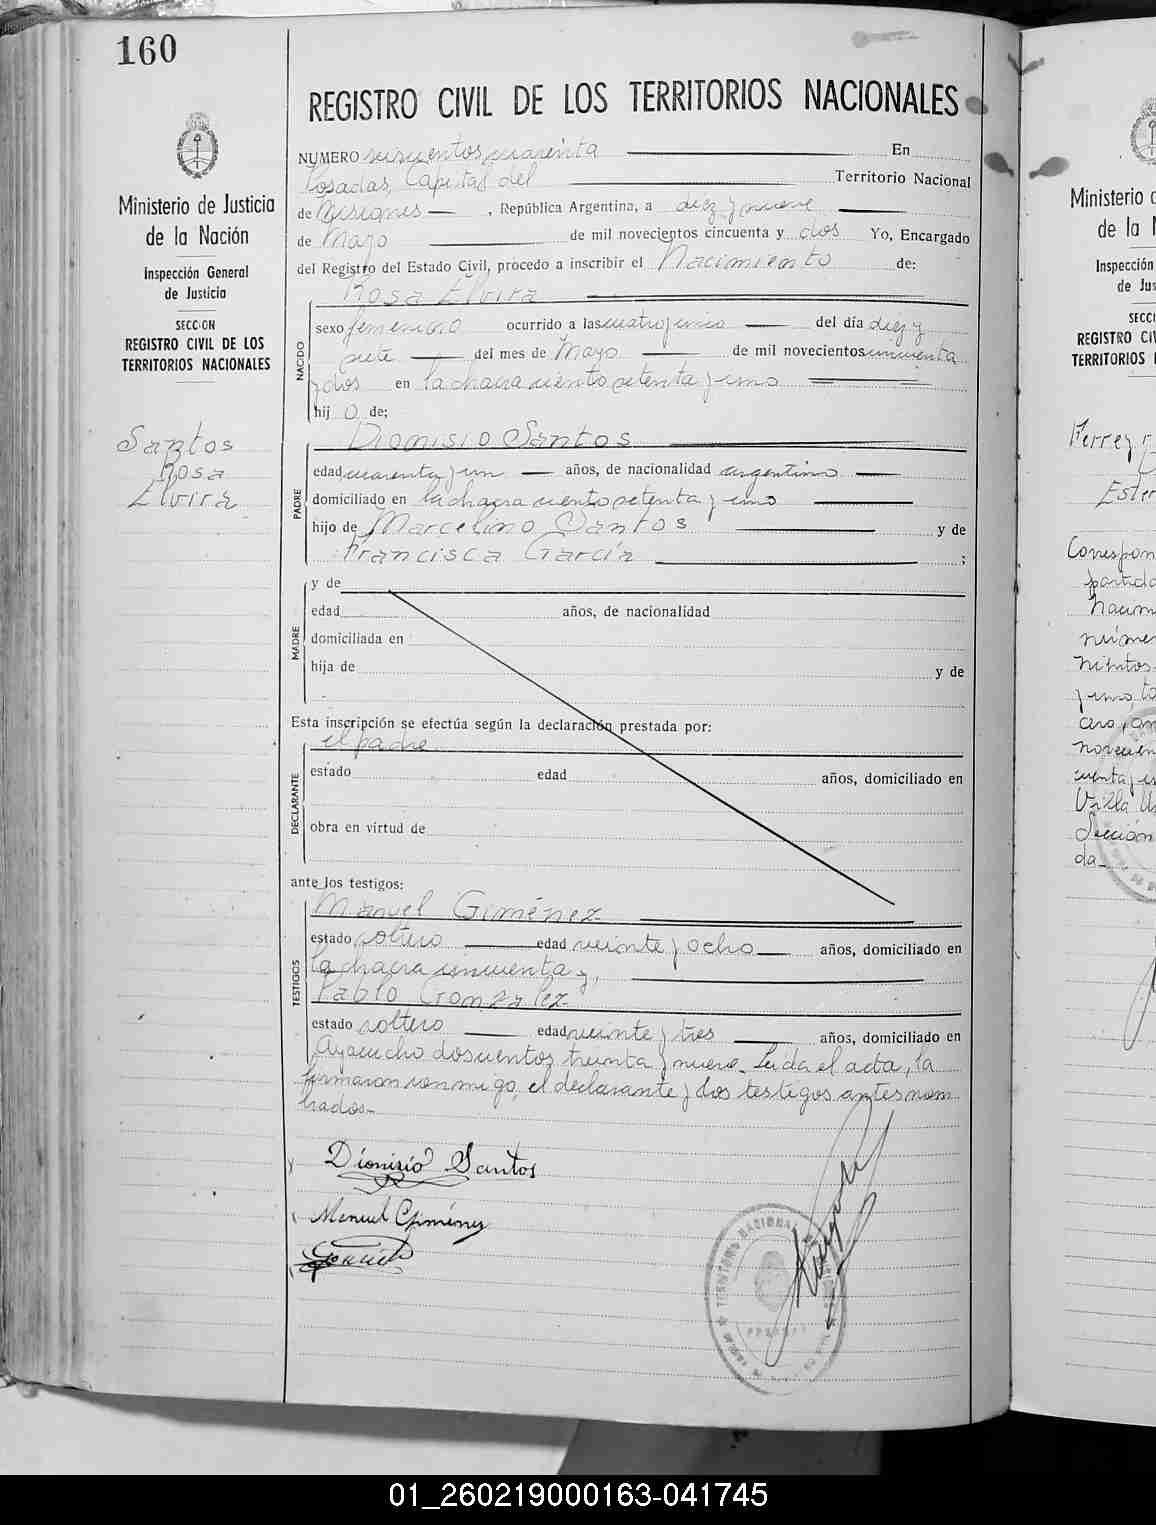 160
Ministerio de Justicia
de la Nación
Inspección General
de Justicia
SECCION
REGISTRO CIVIL DE LOS
TERRITORIOS NACIONALES
Santos
Rosa
Elvira
REGISTRO CIVIL DE LOS TERRITORIOS NACIONALES
NUMERO seiscientos cuarenta En
Posadas, Capital del Territorio Nacional
de Misiones, República Argentina, a diez y nueve
de Mayo de mil novecientos cincuenta y dos Yo, Encargado
del Registro del Estado Civil, procedo a inscribir el Nacimiento de:
Rosa Elvira
NACIDO
sexo femenino ocurrido a las cuatro y cinco del día diez y
siete del mes de Mayo de mil novecientos cincuenta
y dos en la chacra ciento setenta y uno
hij o de;
Dionisio Santos
PADRE
edad cuarenta y un años, de nacionalidad argentino
domiciliado en la chacra ciento setenta y uno
hijo de Marcelino Santos y de
Francisca García ;
MADRE
y de
edad años, de nacionalidad
domiciliada en
hija de y de
Esta inscripción se efectúa según la declaración prestada por:
el padre
DECLARANTE
estado edad años, domiciliado en
obra en virtud de
ante los testigos:
Manuel Giménez
TESTIGOS
estado soltero edad veinte y ocho años, domiciliado en
la chacra cincuenta y,
Pablo Gonzalez
estado soltero edad veinte y tres años, domiciliado en
Ayacucho doscientos treinta y nueve. Leida el acta, la
firmaron conmigo, el declarante y los testigos antes nom
brados.-
Dionisio Santos
Manuel Giménez
TERRITORIO NACIONAL
Ministerio
de la
Inspección
de Jus
SECCI
REGISTRO CIV
TERRITORIOS
Ferreyra
Ester
Correspon
partida
Nacim
númer
y uno, to
novecien
cuenta y
Villa
Sección
da_
01_260219000163-041745